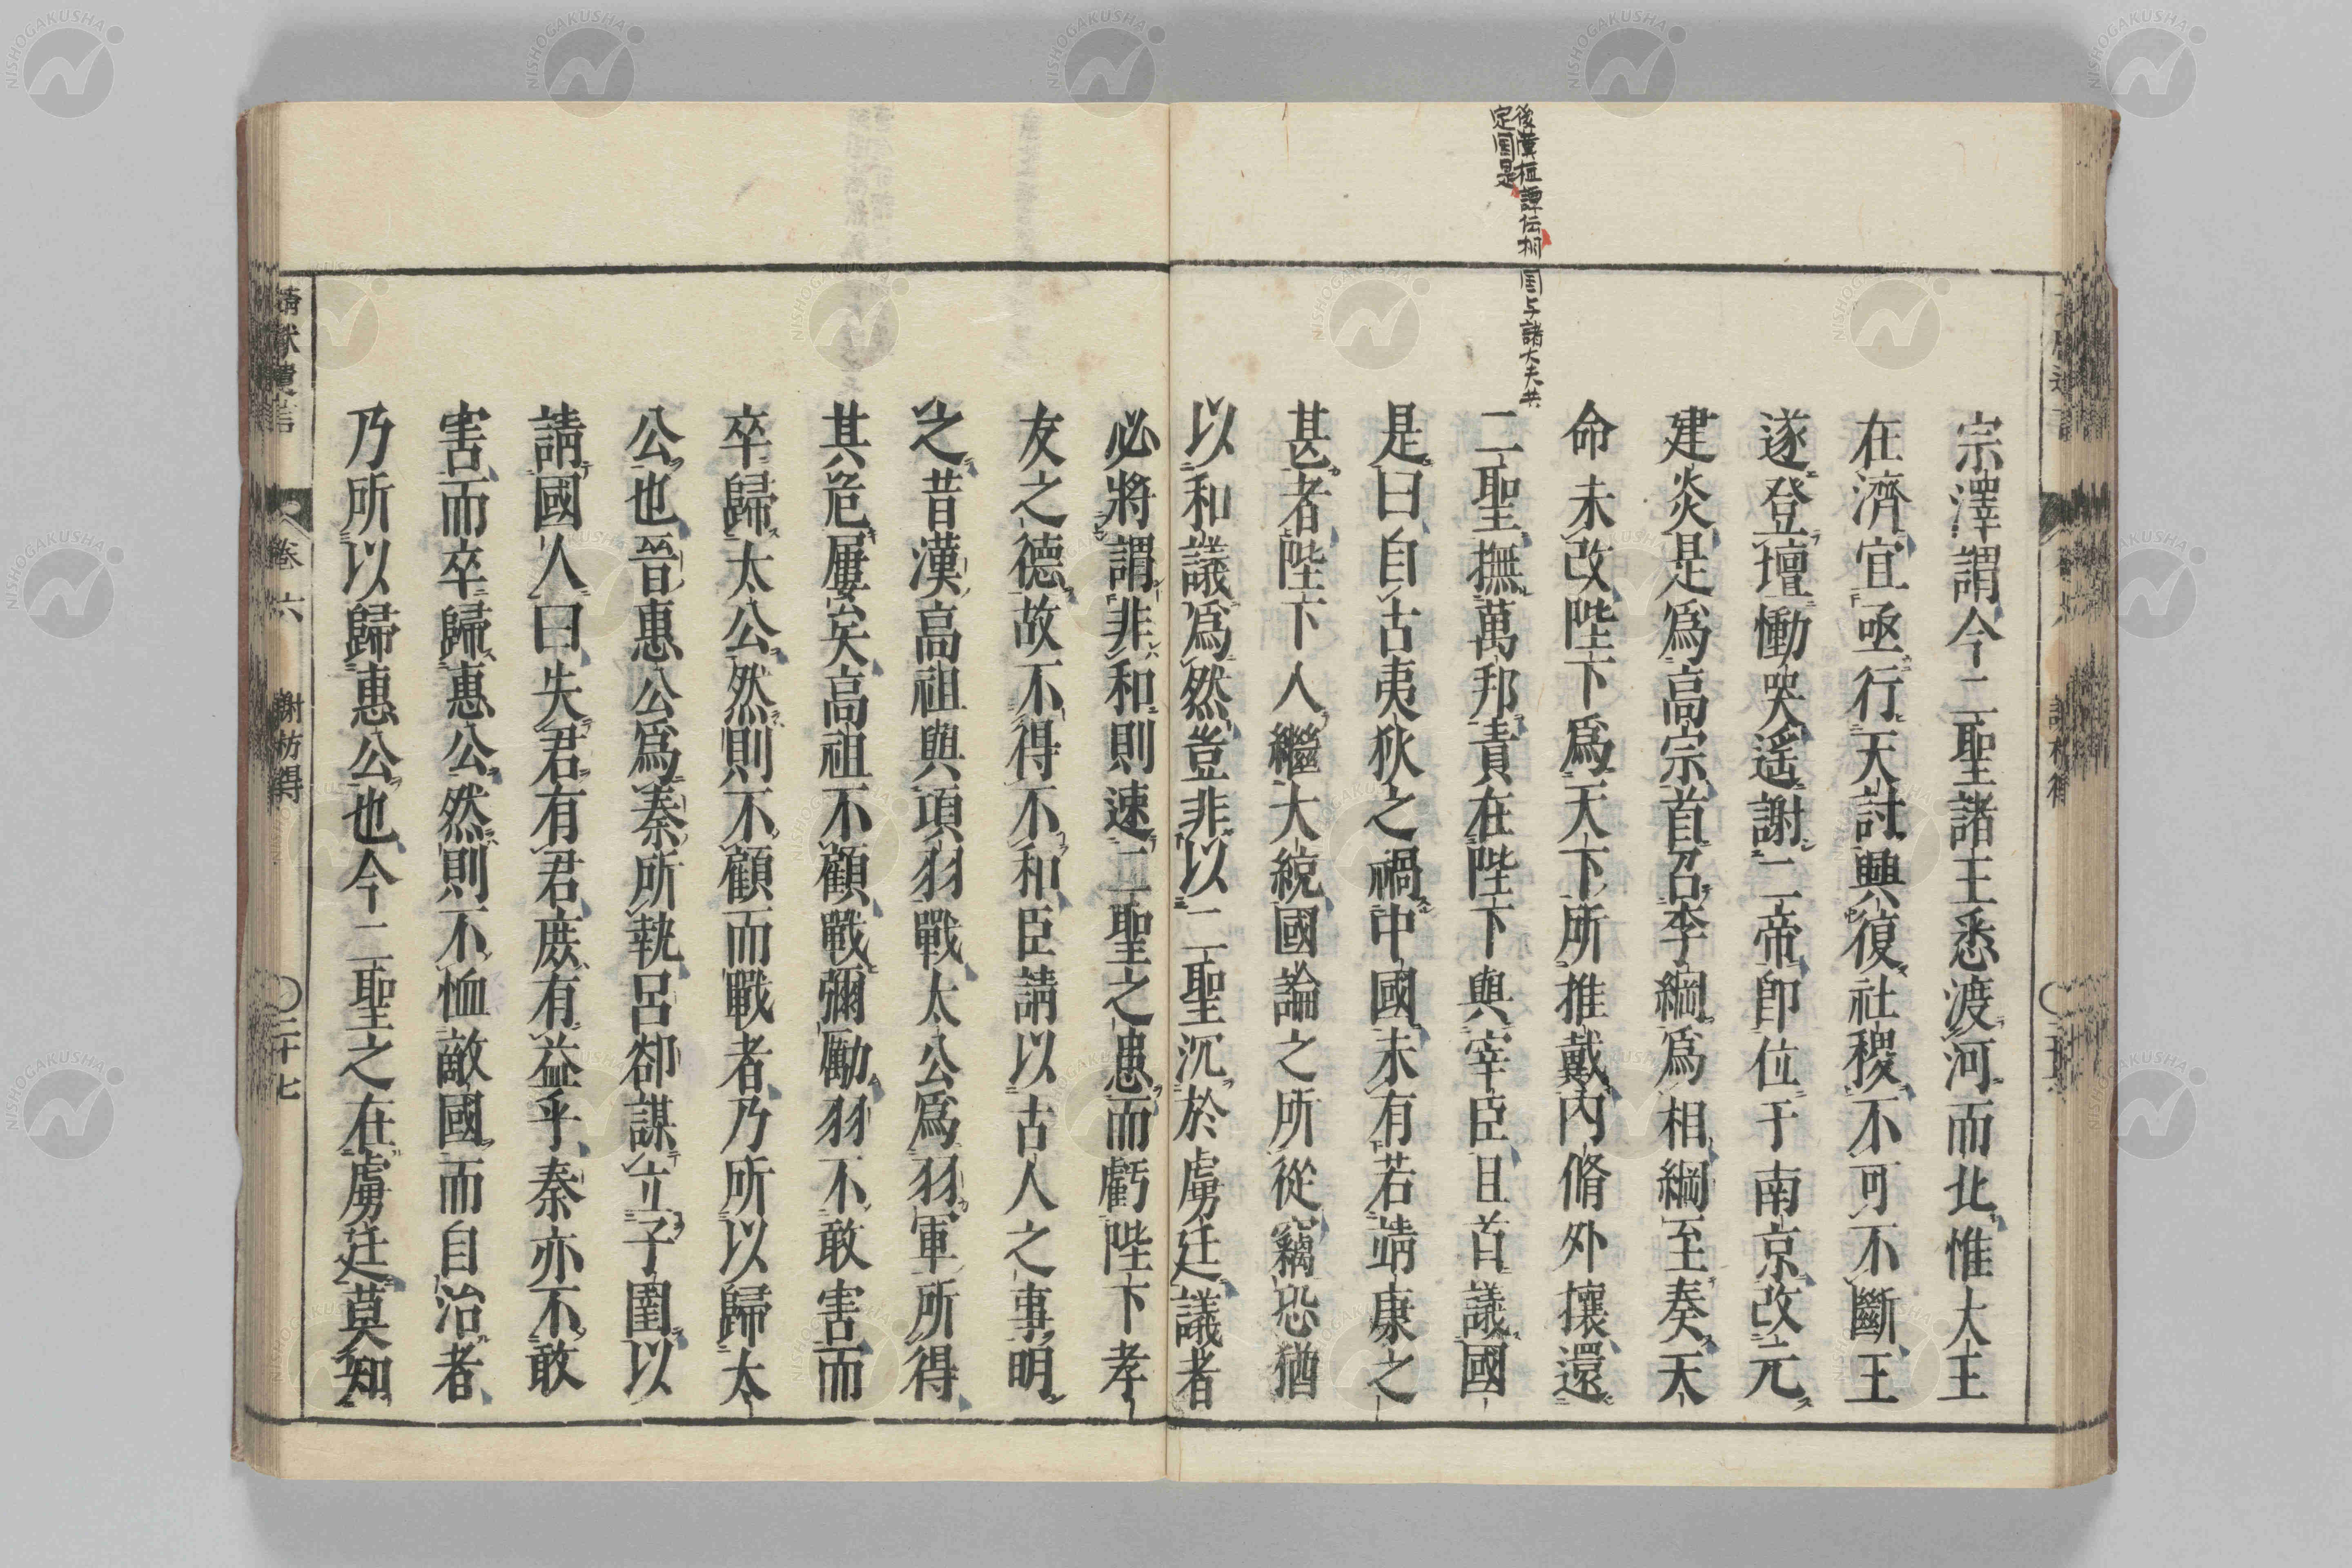 後漢桓譚伝桐 国与諸大夫共
定国是
宗澤謂今二聖諸王悉渡河而北惟大王
在濟宜亟行天討興復社稷不可不斷王
遂登壇慟哭遥謝二帝即位于南京改元
建炎是爲高宗首召李綱爲相綱至奏天
命未改陛下爲天下所推戴內脩外攘還
二聖撫萬邦責在陛下與宰臣且首議國
是曰自古夷狄之禍中國未有若靖康之
甚者陛下入繼大統國論之所從竊恐猶
以和議爲然豈非以二聖沉於虜廷議者
必將謂非和則速二聖之患而虧陛下孝
友之德故不得不和臣請以古人之事明
之昔漢高祖與項羽戰太公爲羽軍所得
其危屢矣高祖不顧戰彌勵羽不敢害而
卒歸太公然則不顧而戰者乃所以歸太
公也晉惠公爲秦所執呂郤謀立子圉以
請國人曰失君有君庶有益乎秦亦不敢
害而卒歸惠公然則不恤敵國而自治者
乃所以歸惠公也今二聖之在虜廷莫知
靖獻遺言 卷六 謝枋得 〇三十七
NISHOGAKUSHA